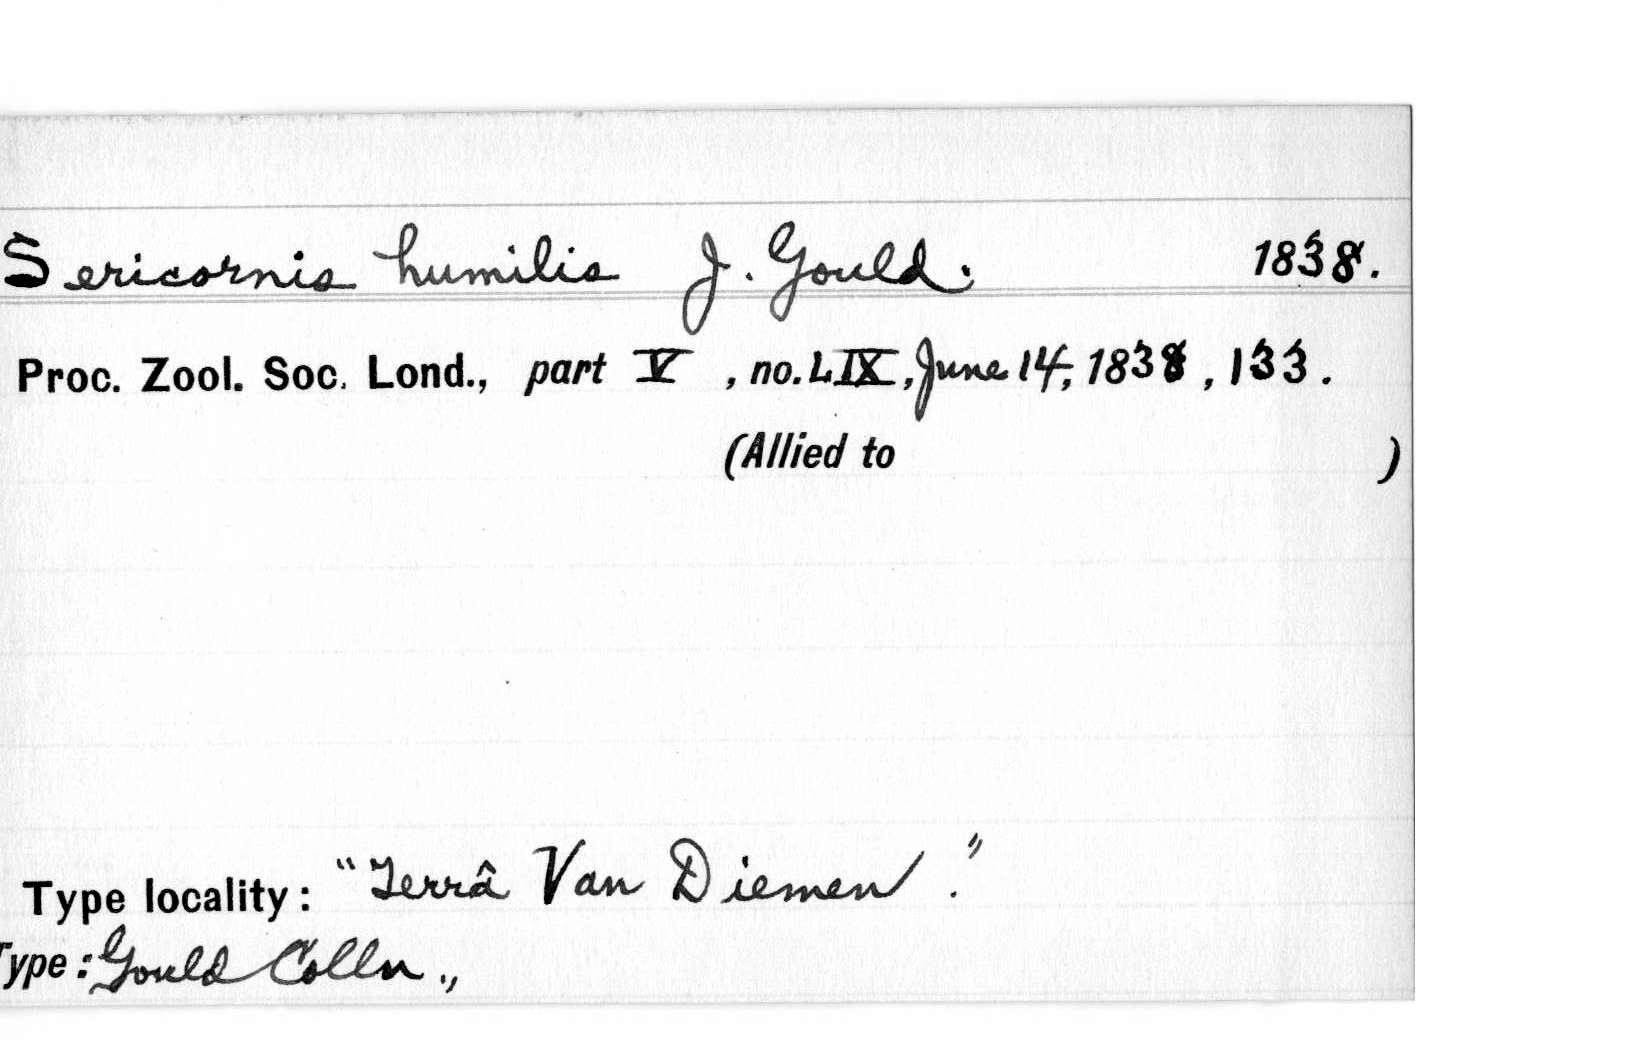 Sericornis humilis J. Gould. 1838.
Proc. Zool. Soc. Lond., part V, no. LIX, June 14, 1838, 133.
(Allied to )
Type locality: "Terrâ Van Diemen."
Type: Gould Colln.,